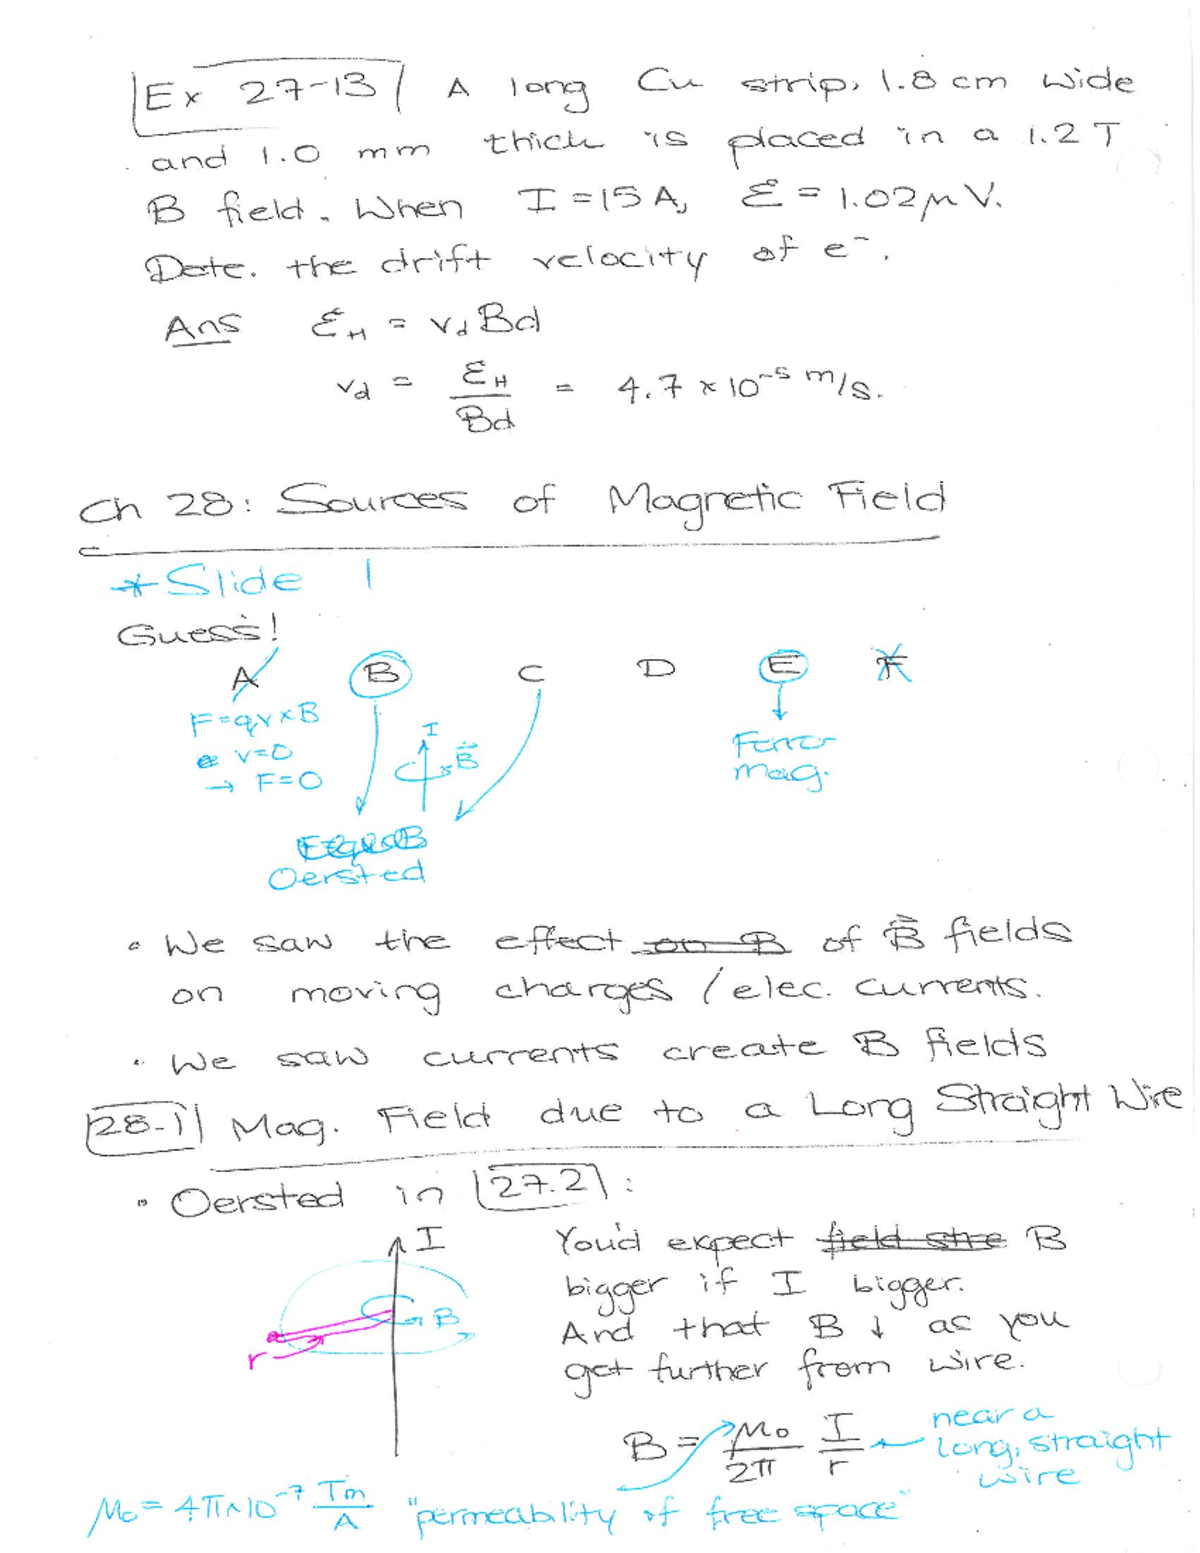 Ex 27-13 A long Cu strip, 1.8 cm wide
and 1.0 mm thick is placed in a 1.2 T
B field. When I = 15 A, ℰ = 1.02 μV.
Dete. the drift velocity of e⁻.
Ans ℰ_H = v_d Bd
v_d = ℰ_H / Bd = 4.7 × 10⁻⁵ m/s.
Ch 28: Sources of Magnetic Field
* Slide 1
Guess!
A B C D E F
F = qv × B
v = 0
→ F = 0
I
B⃗
Ferro-
mag.
Oersted
• We saw the effect on B of B⃗ fields
on moving charges / elec. currents.
• We saw currents create B fields
28-1 Mag. Field due to a Long Straight Wire
• Oersted in 27.2 :
I
B
r
You'd expect field stre B
bigger if I bigger.
And that B ↓ as you
get further from wire.
B = μ₀/2π I/r ← near a
long, straight
wire
μ₀ = 4π × 10⁻⁷ Tm/A "permeability of free space"